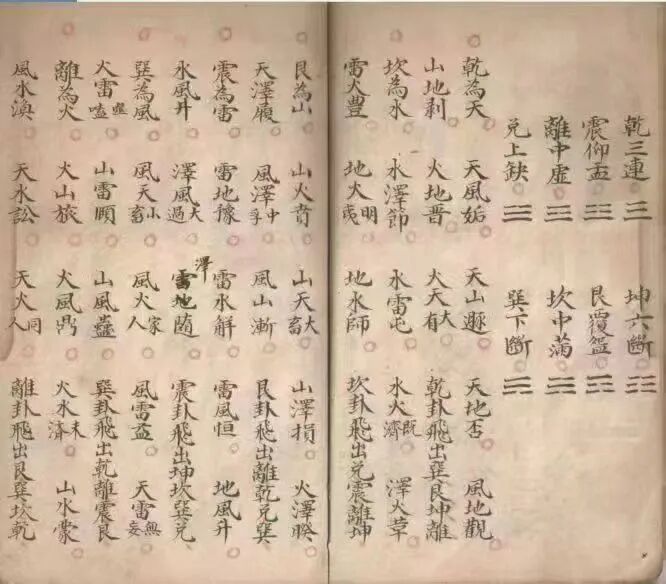 乾三連 坤六斷
震仰盂 艮覆盌
離中虛 坎中滿
兌上缺 巽下斷
乾為天 天風姤 天山遯 天地否 風地觀
山地剥 火地晋 火天大有 乾卦飛出巽艮坤離
坎為水 水澤節 水雷屯 水火既濟 澤火草
雷火豊 地火明夷 地水師 坎卦飛出兌震離坤
艮為山 山火賁 山天大畜 山澤損 火澤睽
天澤履 風澤中孚 風山漸 艮卦飛出離乾兌巽
震為雷 雷地豫 雷水解 雷風恒 地風升
水風升 澤風大過 澤雷地随 震卦飛出坤坎巽兌
巽為風 風天小畜 風火家人 風雷益 天雷無妄
火雷噬嗑 山雷頤 山風蠱 巽卦飛出乾離震艮
離為火 火山旅 火風鼎 火水未濟 山水蒙
風水渙 天水訟 天火同人 離卦飛出艮巽坎乾